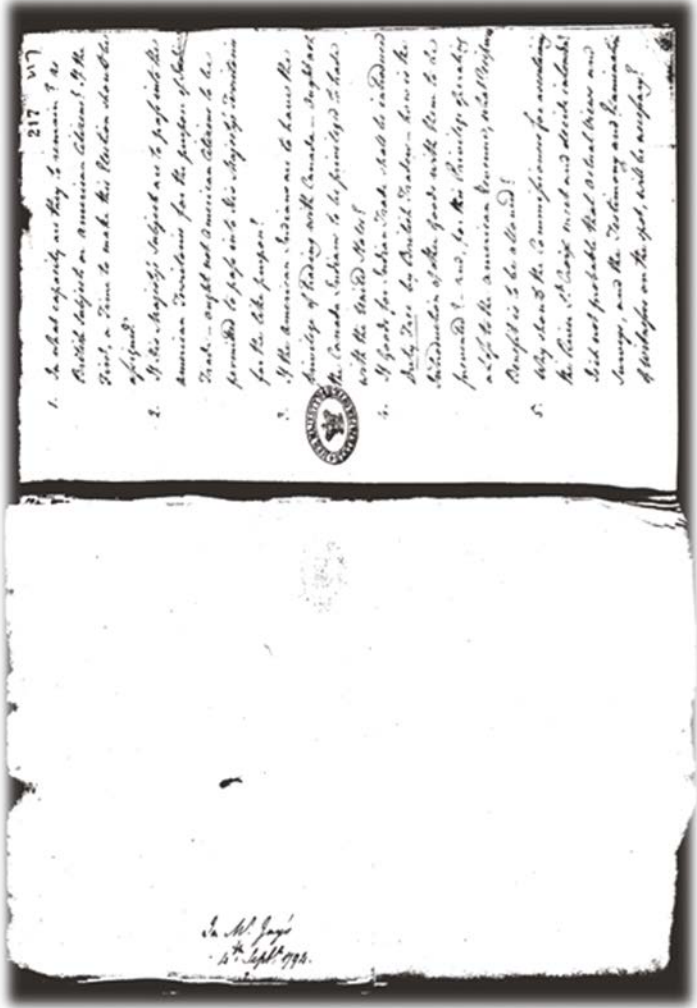 217 217
1. In what capacity are they to remain? As
British Subjects or American Citizens? If the
First, a Time to make this Election should be
assigned.
2. If His Majesty's Subjects are to pass into the
American Territories for the purpose of Indian
Trade — ought not American Citizens to be
permitted to pass into His Majesty's Territories
for the like purpose?
3. If the American Indians are to have the
privilege of trading with Canada — ought not
the Canada Indians to be privileged to trade
with the United States?
4. If Goods for Indian Trade shall be introduced
Duty Free by British Traders — how is the
Introduction of other Goods with them to be
prevented? — and, for this Privilege operating
a loss to the American Revenue, what reciprocal
Benefit is to be allowed?
5. Why should the Commissioners for ascertaining
the River St. Croix meet and decide in London?
Is it not probable that actual Views and
Surveys, and the Testimony and Examination
of Witnesses on the spot, will be necessary?
In Mr. Jay's
4th Septr. 1794.